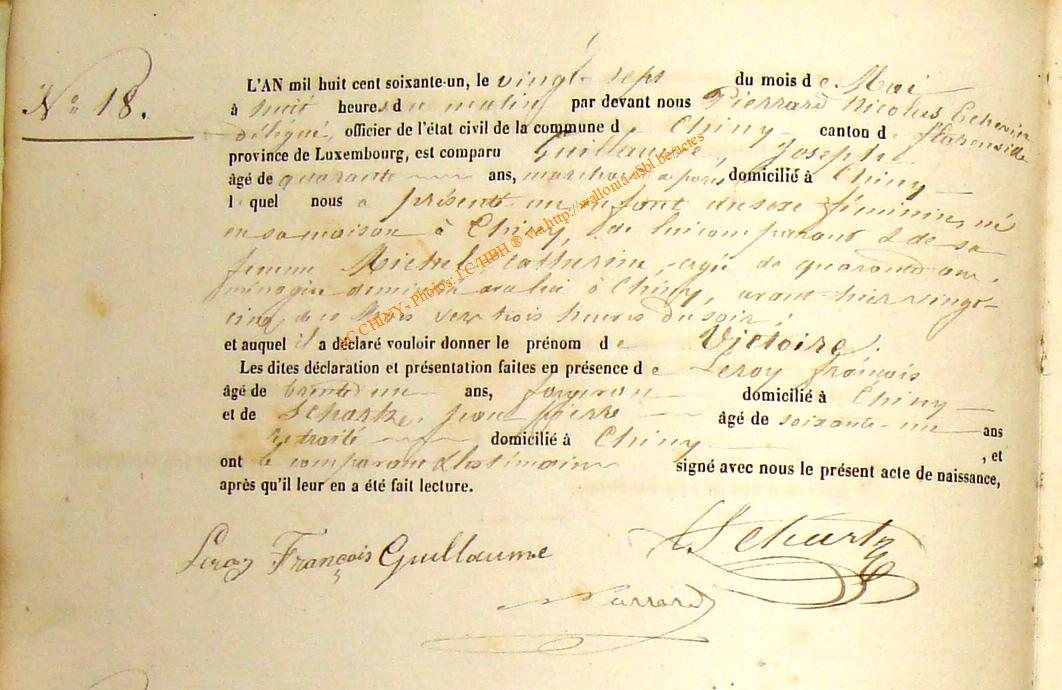 N° 18.
L'AN mil huit cent soixante-un, le vingt-sept du mois de Mai
à huit heures du matin par devant nous Pierrard Nicolas Echevin
délégué, officier de l'état civil de la commune de Chiny canton de Florenville
province de Luxembourg, est comparu Guillaume, Joseph
âgé de quarante ans, marchand de porcs domicilié à Chiny
lequel nous a présenté un enfant du sexe féminin, né
en sa maison à Chiny, de lui comparant & de sa
femme Michel Catherine, agée de quarante ans,
ménagère demeurant avec lui à Chiny, avant hier vingt-
cinq de ce Mois vers trois heures du soir,
et auquel il a déclaré vouloir donner le prénom de Victoire.
Les dites déclaration et présentation faites en présence de Leroy françois
âgé de trente un ans, forgeron domicilié à Chiny
et de Schartz, jean pierre âgé de soixante-un ans
retraité domicilié à Chiny , et
ont le comparant & les témoins signé avec nous le présent acte de naissance,
après qu'il leur en a été fait lecture.
Leroy François Guillaume Schartz
Pierrard
CHINY - Photos: TC/HBH ® via http://wallonia-asbl.be/actes